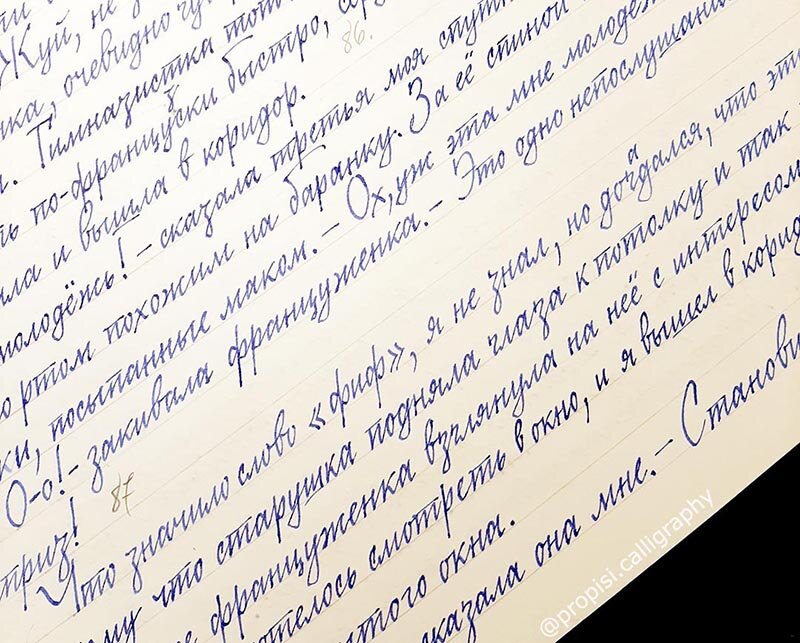 Жуй, не з
нка, очевидно чу
я. Гимназистка топ
ть по-французски быстро,
86.
ила и вышла в коридор.
молодёжь! – сказала третья моя спутн
о ртом похожим на баранку. За её спиной
ки, посыпанные маком. – Ох, уж эта мне молодёж
О-о! – закивала француженка. – Это одно непослушани
приз!
87
Что значило слово «фиф», я не знал, но догадался, что эт
му что старушка подняла глаза к потолку и так
е француженка взглянула на неё с интересом
отелось смотреть в окно, и я вышел в корид
ытого окна.
сказала она мне. – Станови
@propisi.calligraphy